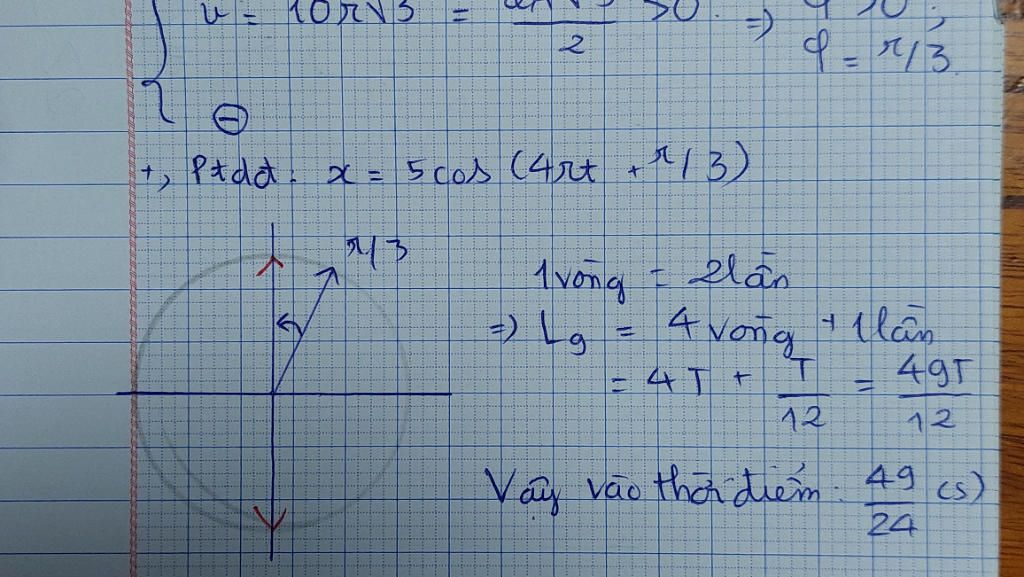 v = 10π√3 = √3 > 0. => φ > 0;
2
φ = π/3
⊖
+, Ptdđ: x = 5cos (4πt + π/3)
π/3
1 vòng = 2 lần
=> L9 = 4 vòng + 1 lần
= 4T + T/12 = 49T/12
Vậy vào thời điểm: 49/24 (s)